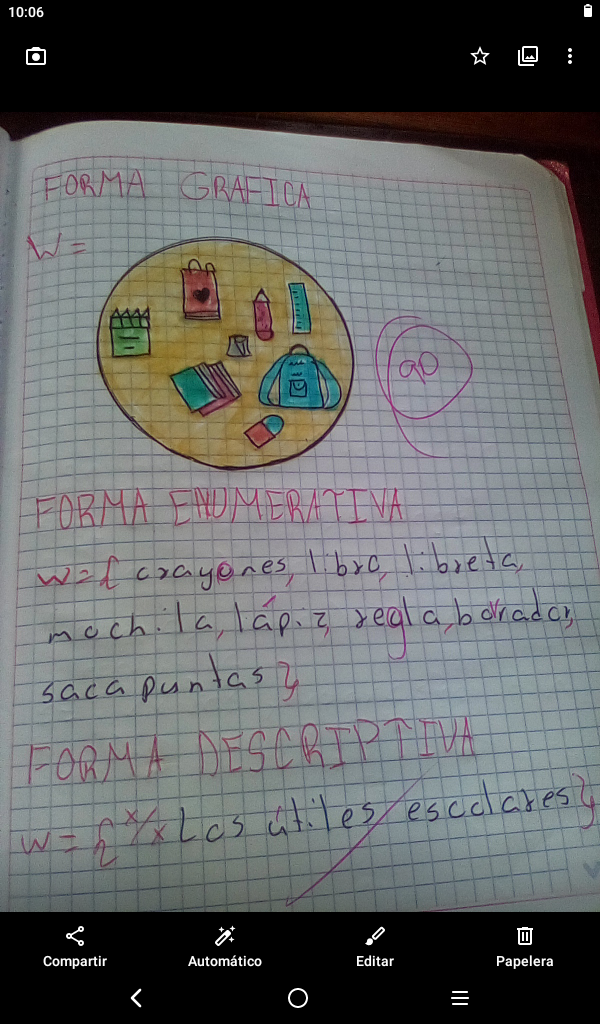 10:06
FORMA GRAFICA
W =
90
FORMA ENUMERATIVA
w={ crayones, libro, libreta,
mochila, lápiz, regla, borrador,
sacapuntas }
FORMA DESCRIPTIVA
w={ x/x Los útiles escolares }
Compartir
Automático
Editar
Papelera